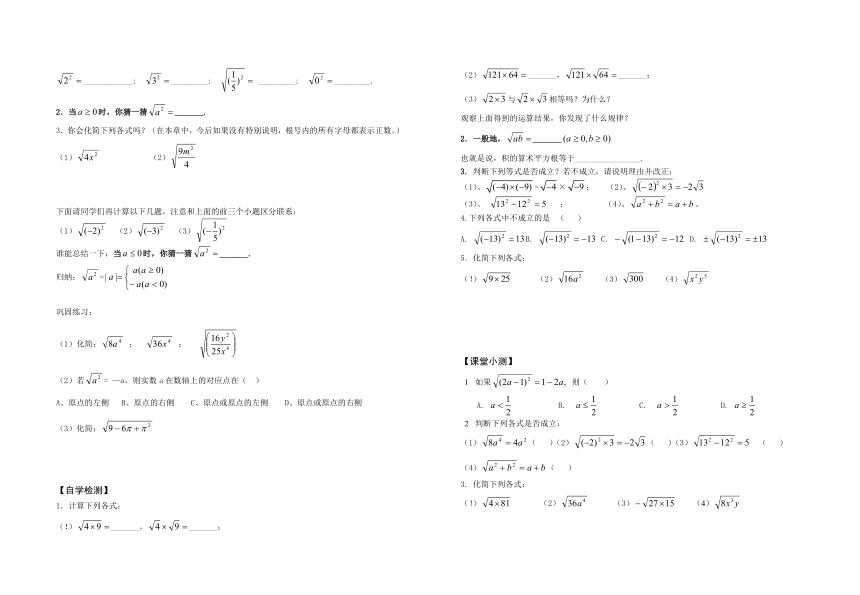 √2² =____________;  √3² =_________;  √(1/5)² = _________;  √0² =_________.
2. 当a≥0时,你猜一猜√a² =_______.
3. 你会化简下列各式吗?(在本章中,今后如果没有特别说明,根号内的所有字母都表示正数。)
(1)√4x²  (2)√(9m²/4)
下面请同学们再计算以下几题,注意和上面的前三个小题区分联系:
(1)√(-2)²  (2)√(-3)²  (3)√(-1/5)²
谁能总结一下:当a≤0时,你猜一猜√a² =_______.
归纳:√a² =|a|={ a(a≥0)
-a(a<0)
巩固练习:
(1)化简:√8a⁴ ;  √36x⁴ ;  √(16y²/25x⁴)
(2)若√a² = —a,则实数a在数轴上的对应点在( )
A、原点的左侧  B、原点的右侧  C、原点或原点的左侧  D、原点或原点的右侧
(3)化简:√9-6π+π²
【自学检测】
1. 计算下列各式:
(!)√4×9 =_______,√4×√9 =_______;
(2)√121×64 =_______,√121×√64 =_______;
(3)√2×3 与√2×√3 相等吗?为什么?
观察上面得到的运算结果,你发现了什么规律?
2. 一般地,√ab =_______(a≥0,b≥0)
也就是说,积的算术平方根等于________________.
3. 判断下列等式是否成立?若不成立,请说明理由并改正:
(1)、√(-4)×(-9) =√-4 ×√-9 ;  (2)、√(-2)²×3 =-2√3
(3)、√13²-12² =5 ;  (4)、√a²+b² =a+b 。
4.下列各式中不成立的是 ( )
A. √(-13)² =13 B. √(-13)² =-13 C. -√(1-13)² =-12 D. ±√(-13)² =±13
5. 化简下列各式:
(!)√9×25  (2)√16a²  (3)√300  (4)√x²y⁵
【课堂小测】
1 如果√(2a-1)² =1-2a, 则( )
A. a<1/2  B. a≤1/2  C. a>1/2  D. a≥1/2
2 判断下列各式是否成立:
(1)√8a⁴ =4a² ( )(2)√(-2)²×3 =-2√3 ( )(3)√13²-12² =5 ( )
(4)√a²+b² =a+b ( )
3. 化简下列各式:
(!)√4×81  (2)√36a⁴  (3)-√27×15  (4)√8x³y